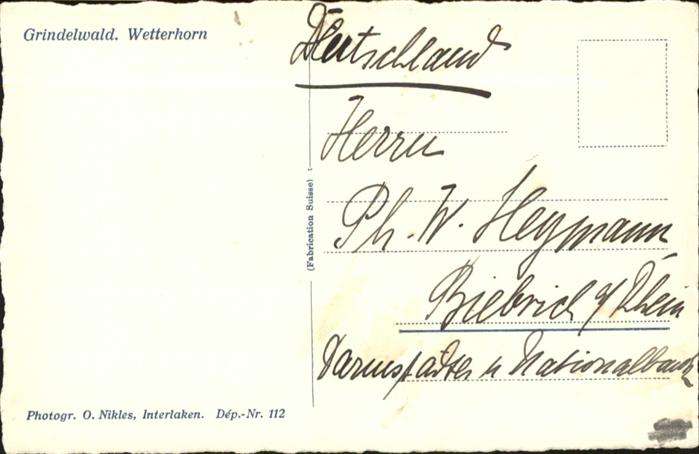 Grindelwald. Wetterhorn
Deutschland
Herrn
Ph. W. Heymann
Biebrich a/Rhein
Darmstädter u Nationalbank
(Fabrication Suisse)
Photogr. O. Nikles, Interlaken. Dép.-Nr. 112